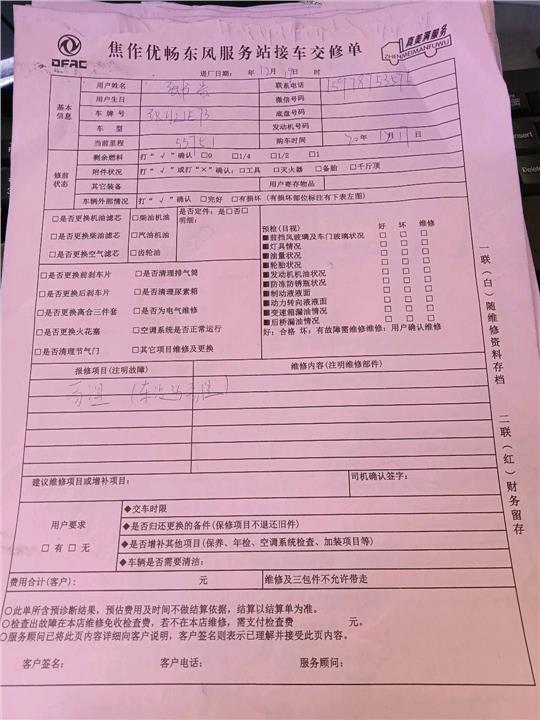 DFAC
焦作优畅东风服务站接车交修单
真美满服务
ZHENMEIMANFUWU
进厂日期： 年 12月 日 时
基本信息
用户姓名 联系电话
用户生日 微信号码
车牌号 底盘号码
车型 发动机号码
当前里程 55751 购车时间 20 年 12月17日
修前状态
剩余燃料 打“√”确认 □0 □1/4 □1/2 □1
附件状况 打“√”或打“×”确认：□工具 □灭火器 □备胎 □千斤顶
其它装备 用户寄存物品
车辆外部情况 打“√”确认 □完好 □有损坏（有损坏部位标注有下表左图）
□是否更换机油滤芯 □柴油机油 是否定件：是□否□
明细：
□是否更换柴油滤芯 □汽油机油
□是否更换空气滤芯 □齿轮油
□是否更换前刹车片 □是否清理排气筒
□是否更换后刹车片 □是否清理尿素箱
□是否更换离合三件套 □是否为电气维修
□是否更换火花塞 □空调系统是否正常运行
□是否清理节气门 □其它项目维修及更换
预检(目视) 好 坏 维修
■前挡风玻璃及车门玻璃状况 □ □ □
■灯具情况 □ □ □
■油量状况 □ □ □
■轮胎状况 □ □ □
■发动机机油状况 □ □ □
■防冻防锈瓶状况 □ □ □
■制动液液面 □ □ □
■动力转向液液面 □ □ □
■变速箱漏油情况 □ □ □
■后桥漏油情况 □ □ □
好：合格 坏：有故障需维修维修：用户确认维修
报修项目(注明故障) 维修内容(注明维修部件)
建议维修项目或增补项目： 司机确认签字：
用户要求
□有 □无
◆交车时限
◆是否归还更换的备件(保修项目不退还旧件)
◆是否增补其他项目(保养、年检、空调系统检查、加装项目等)
◆车辆是否需要清洁：
费用合计(客户)： 元 维修及三包件不允许带走
○此单所含预诊断结果，预估费用及时间不做结算依据，结算以结算单为准。
○检查出故障在本店维修免收检查费，若不在本店维修，需支付检查费 元。
○服务顾问已将此页内容详细向客户说明，客户签名则表示已理解并接受此页内容。
客户签名： 客户电话： 服务顾问：
一联(白)随维修资料存档
二联(红)财务留存